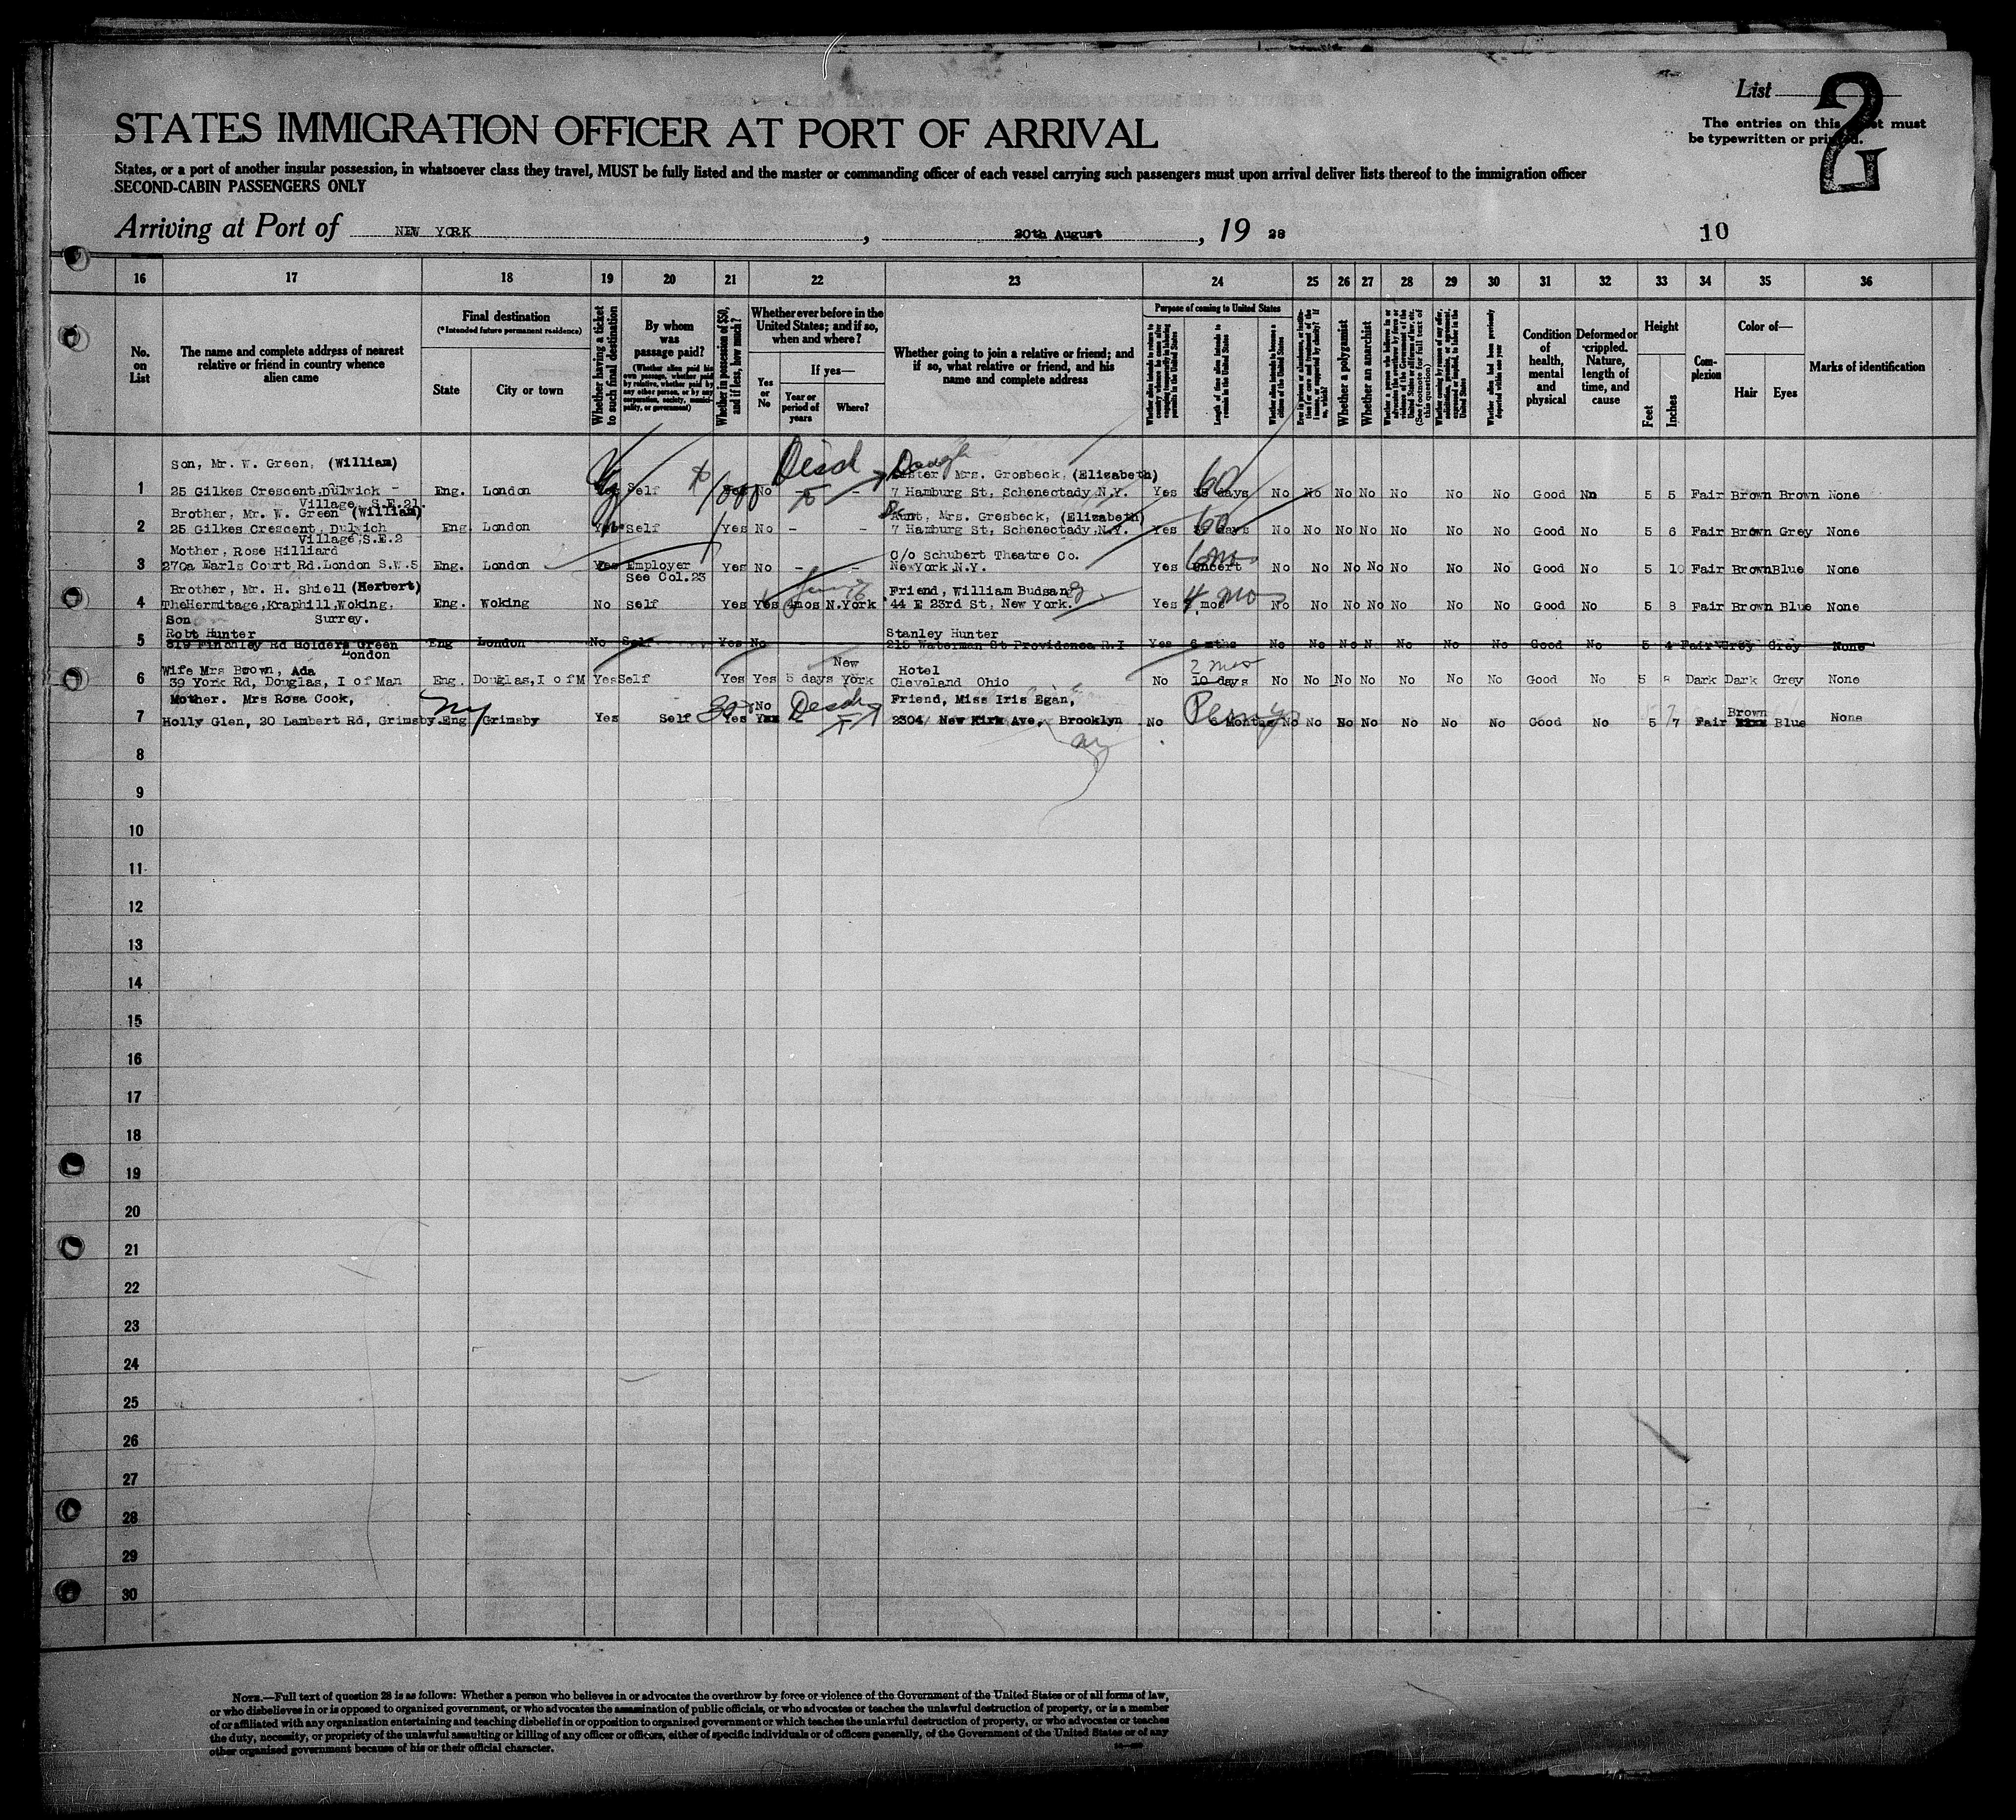 List
2
The entries on this sheet must
be typewritten or printed.
STATES IMMIGRATION OFFICER AT PORT OF ARRIVAL
States, or a port of another insular possession, in whatsoever class they travel, MUST be fully listed and the master or commanding officer of each vessel carrying such passengers must upon arrival deliver lists thereof to the immigration officer
SECOND-CABIN PASSENGERS ONLY
Arriving at Port of NEW YORK, 20th August, 19 28
10
16 17 18 19 20 21 22 23 24 25 26 27 28 29 30 31 32 33 34 35 36
No. on List
The name and complete address of nearest relative or friend in country whence alien came
Final destination
(*Intended future permanent residence)
State
City or town
Whether having a ticket to such final destination
By whom was passage paid?
(Whether alien paid his own passage, whether paid by relative, whether paid by any other person, or by any corporation, society, municipality, or government)
Whether in possession of $50, and if less, how much?
Whether ever before in the United States; and if so, when and where?
Yes or No
If yes—
Year or period of years
Where?
Whether going to join a relative or friend; and if so, what relative or friend, and his name and complete address
Purpose of coming to United States
Length of time alien intends to remain in the United States
Whether a polygamist
Whether an anarchist
Condition of health, mental and physical
Deformed or crippled. Nature, length of time, and cause
Height
Feet
Inches
Complexion
Color of—
Hair
Eyes
Marks of identification
Son, Mr. W. Green, (William)
1 25 Gilkes Crescent, Dulwich Village, S.E.21. Eng. London Self 1000 No - - Desd
Daugh Mrs. Grosbeck, (Elizabeth)
7 Hamburg St, Schenectady N.Y. Yes 60 days No No No No No No No Good No 5 5 Fair Brown Brown None
Brother, Mr. W. Green (William)
2 25 Gilkes Crescent, Dulwich Village, S.E.2 Eng. London Yes Self Yes No - -
Aunt, Mrs. Grosbeck, (Elizabeth)
7 Hamburg St, Schenectady, N.Y. Yes 60 days No No No No No No No Good No 5 6 Fair Brown Grey None
Mother, Rose Hilliard
3 270a Earls Court Rd. London S.W.5 Eng. London Yes Employer See Col.23 Yes No - -
C/o Schubert Theatre Co.
NewYork N.Y. Yes 6 mos No No No No No No No Good No 5 10 Fair Brown Blue None
Brother, Mr. H. Shiell (Herbert)
4 TheHermitage, Kraphill, Woking, Surrey. Eng. Woking No Self Yes Yes 4mos N.York
Friend, William Budsang
44 E 23rd St, New York. Yes 4 mos No No No No No No No Good No 5 8 Fair Brown Blue None
Son
Robt Hunter
5 819 Finchley Rd Golders Green London Eng London No Self Yes No
Stanley Hunter
215 Waterman St Providence R.I Yes 6 mths No No No No No No No Good No 5 4 Fair Grey Grey None
Wife Mrs Brown, Ada
6 39 York Rd, Douglas, I of Man Eng. Douglas, I of M Yes Self Yes Yes 5 days New York
Hotel
Cleveland Ohio No 2 mos 10 days No No No No No No No Good No 5 8 Dark Dark Grey None
Mother. Mrs Rosa Cook,
7 Holly Glen, 20 Lambert Rd, Grimsby. Eng. NY Grimsby Yes Self Yes No
Friend, Miss Iris Egan,
2304 New Kirk Ave, Brooklyn NY No 6 Months No No No No No No No Good No 5 7 Fair Brown Blue None
8
9
10
11
12
13
14
15
16
17
18
19
20
21
22
23
24
25
26
27
28
29
30
NOTE.—Full text of question 28 is as follows: Whether a person who believes in or advocates the overthrow by force or violence of the Government of the United States or of all forms of law,
or who disbelieves in or is opposed to organized government, or who advocates the assassination of public officials, or who advocates or teaches the unlawful destruction of property, or is a member
of or affiliated with any organization entertaining and teaching disbelief in or opposition to organized government or which teaches the unlawful destruction of property, or who advocates or teaches
the duty, necessity, or propriety of the unlawful assaulting or killing of any officer or officers, either of specific individuals or of officers generally, of the Government of the United States or of any
other organized government because of his or their official character.